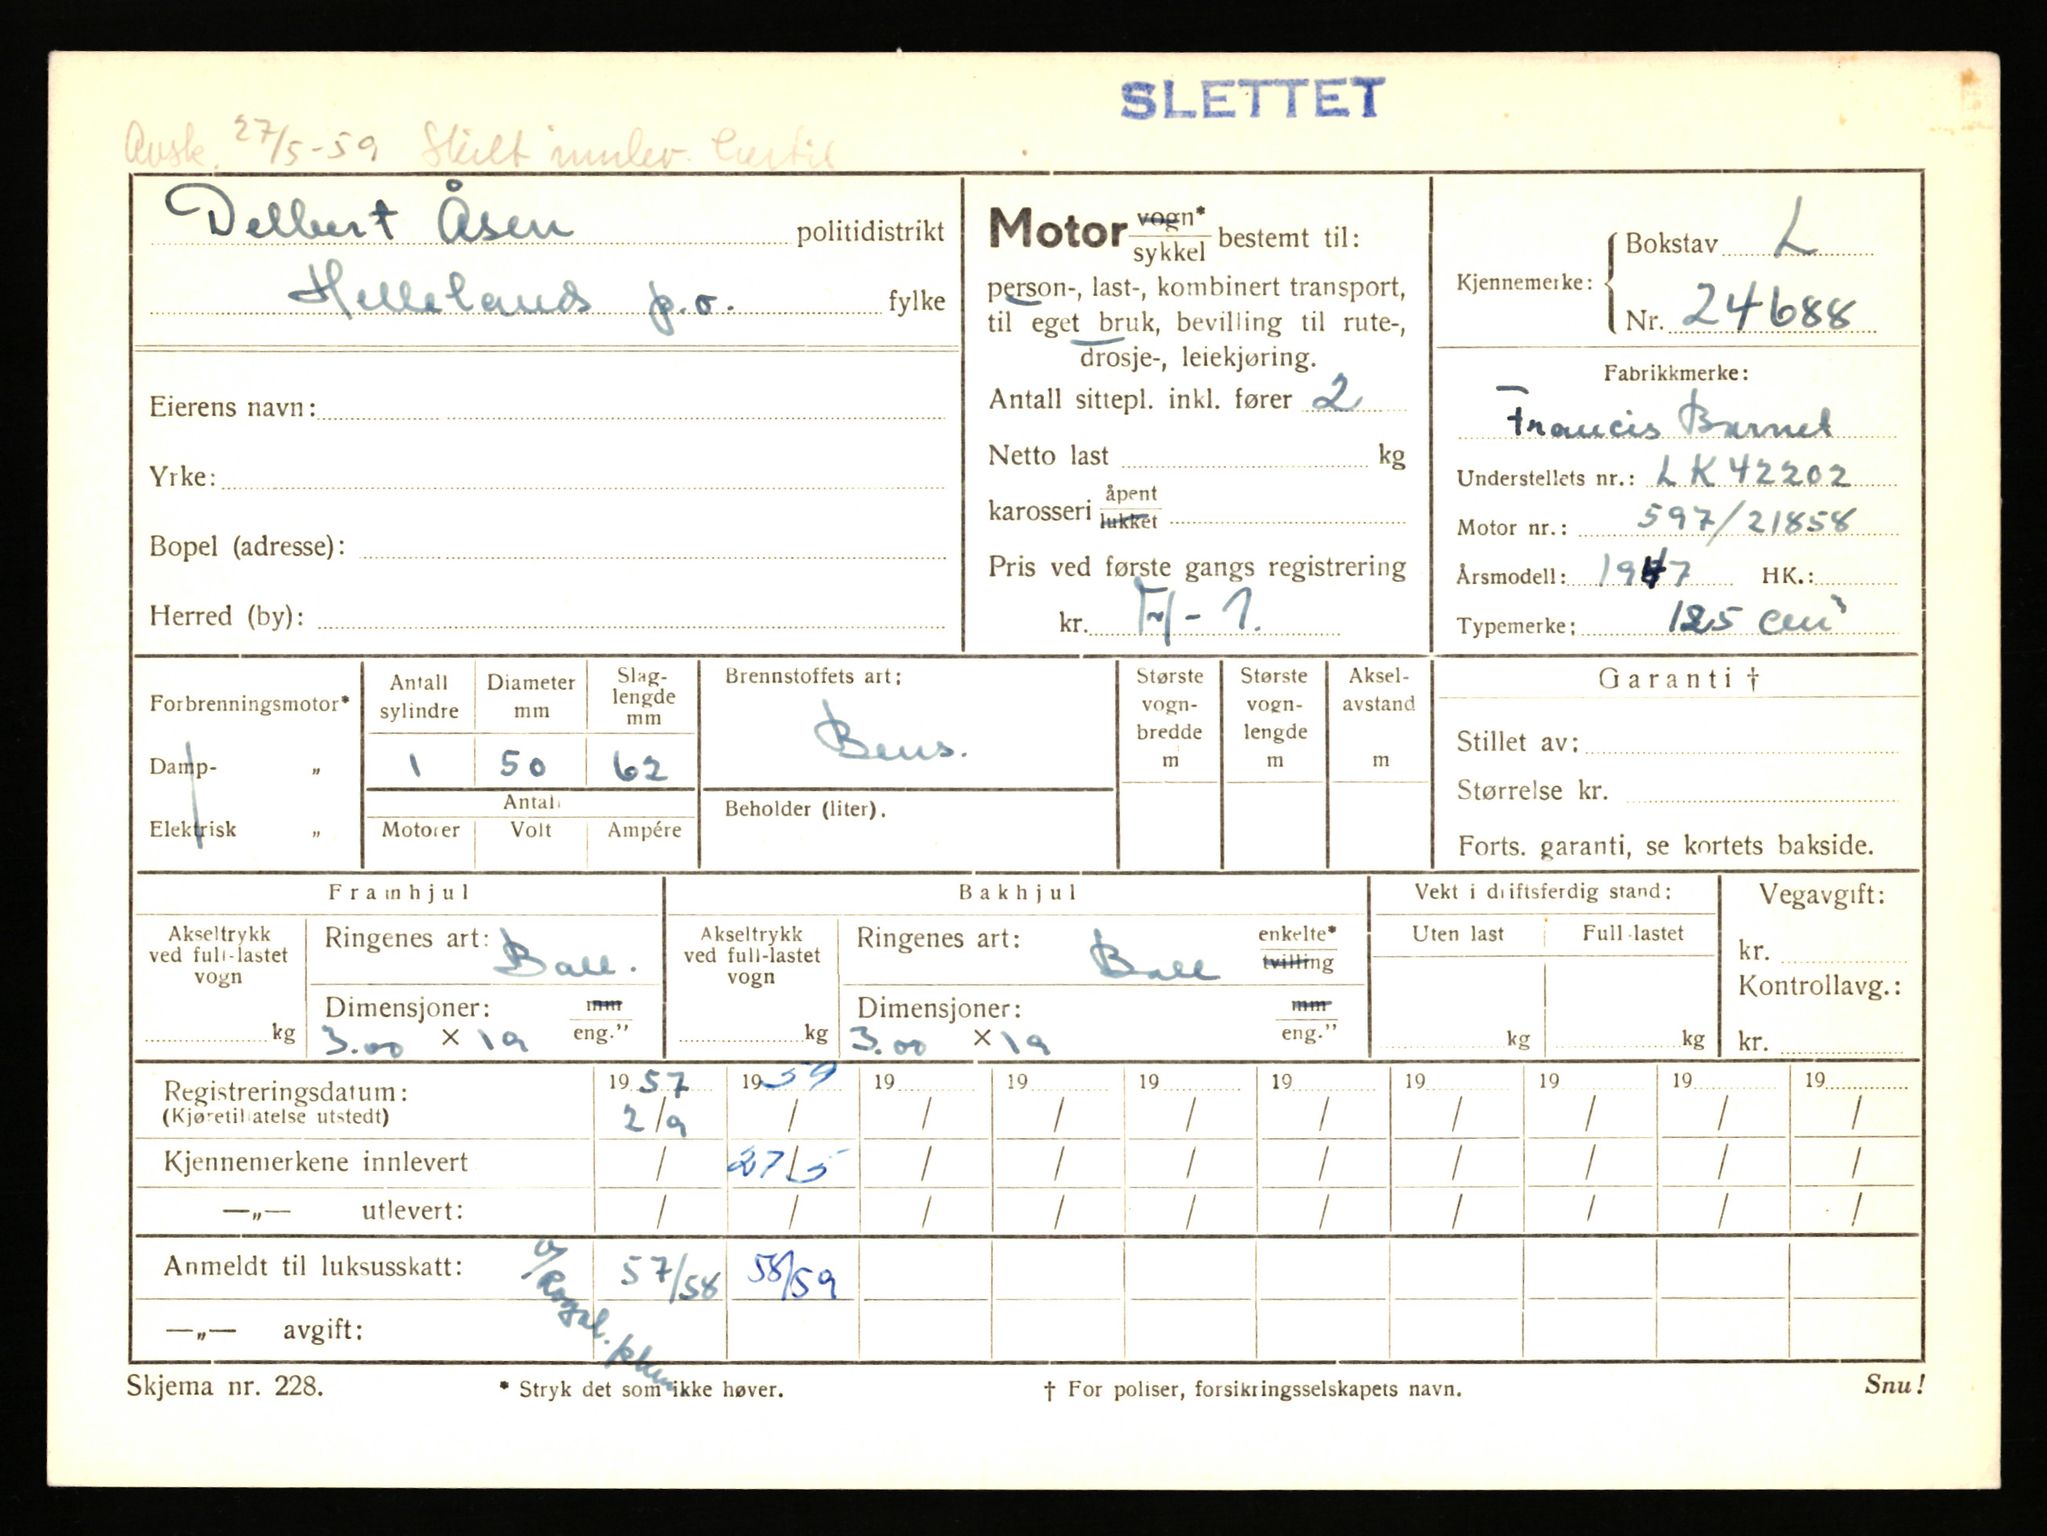 SLETTET
Avsk. 27/5-59 Skilt innlev.
Delbert Åsen politidistrikt
Hellelands p.o. fylke
Eierens navn:
Yrke:
Bopel (adresse):
Herred (by):
Motor vogn* sykkel bestemt til:
person-, last-, kombinert transport,
til eget bruk, bevilling til rute-,
drosje-, leiekjøring.
Antall sittepl. inkl. fører 2
Netto last kg
karosseri åpent lukket
Pris ved første gangs registrering
kr.
Kjennemerke: Bokstav L
Nr. 24688
Fabrikkmerke:
Francis Barnet
Understellets nr.: LK 42202
Motor nr.: 597/21858
Årsmodell: 1947 HK.:
Typemerke: 125 cm³
Forbrenningsmotor*
Damp- „
Elektrisk „
Antall sylindre
Diameter mm
Slag-lengde mm
1 50 62
Antall
Motorer Volt Ampére
Brennstoffets art:
Bens.
Beholder (liter).
Største vogn-bredde m
Største vogn-lengde m
Aksel-avstand m
Garanti †
Stillet av:
Størrelse kr.
Forts. garanti, se kortets bakside.
Framhjul
Akseltrykk ved full-lastet vogn
kg
Ringenes art: Ball.
Dimensjoner: mm eng.”
3.00 × 19
Bakhjul
Akseltrykk ved full-lastet vogn
kg
Ringenes art: Ball enkelte* tvilling
Dimensjoner: mm eng.”
3.00 × 19
Vekt i driftsferdig stand:
Uten last Full-lastet
kg kg
Vegavgift:
kr.
Kontrollavg.:
kr.
Registreringsdatum: 1957 1959 19 19 19 19 19 19 19 19
(Kjøretillatelse utstedt) 2/9 / / / / / / / / /
Kjennemerkene innlevert / 27/5 / / / / / / / /
—„— utlevert: / / / / / / / / / /
Anmeldt til luksusskatt: 57/58 58/59
—„— avgift:
Skjema nr. 228.
* Stryk det som ikke høver.
† For poliser, forsikringsselskapets navn.
Snu!